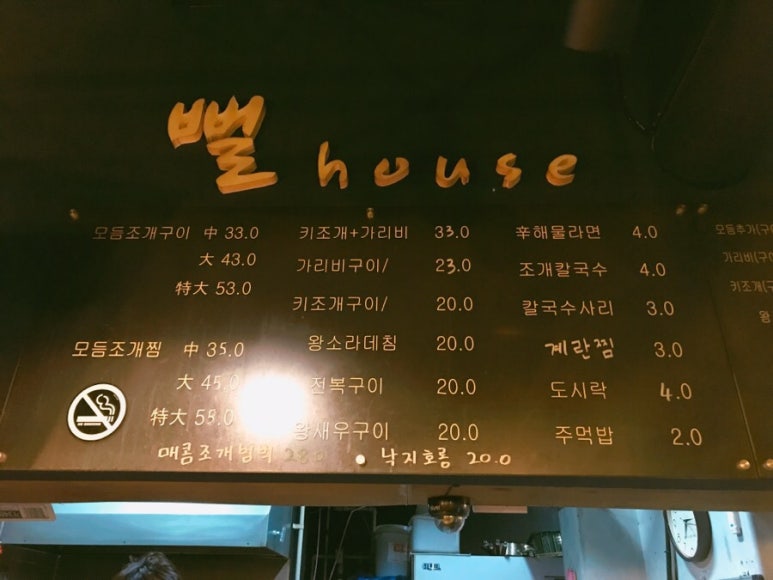 뻘 house
모듬조개구이 中 33.0
大 43.0
特大 53.0
모듬조개찜 中 35.0
大 45.0
特大 55.0
매콤조개범벅 28.0
키조개+가리비 33.0
가리비구이/ 23.0
키조개구이/ 20.0
왕소라데침 20.0
전복구이 20.0
왕새우구이 20.0
낙지호롱 20.0
辛해물라면 4.0
조개칼국수 4.0
칼국수사리 3.0
계란찜 3.0
도시락 4.0
주먹밥 2.0
모듬추가(구
가리비(구
키조개(구
왕